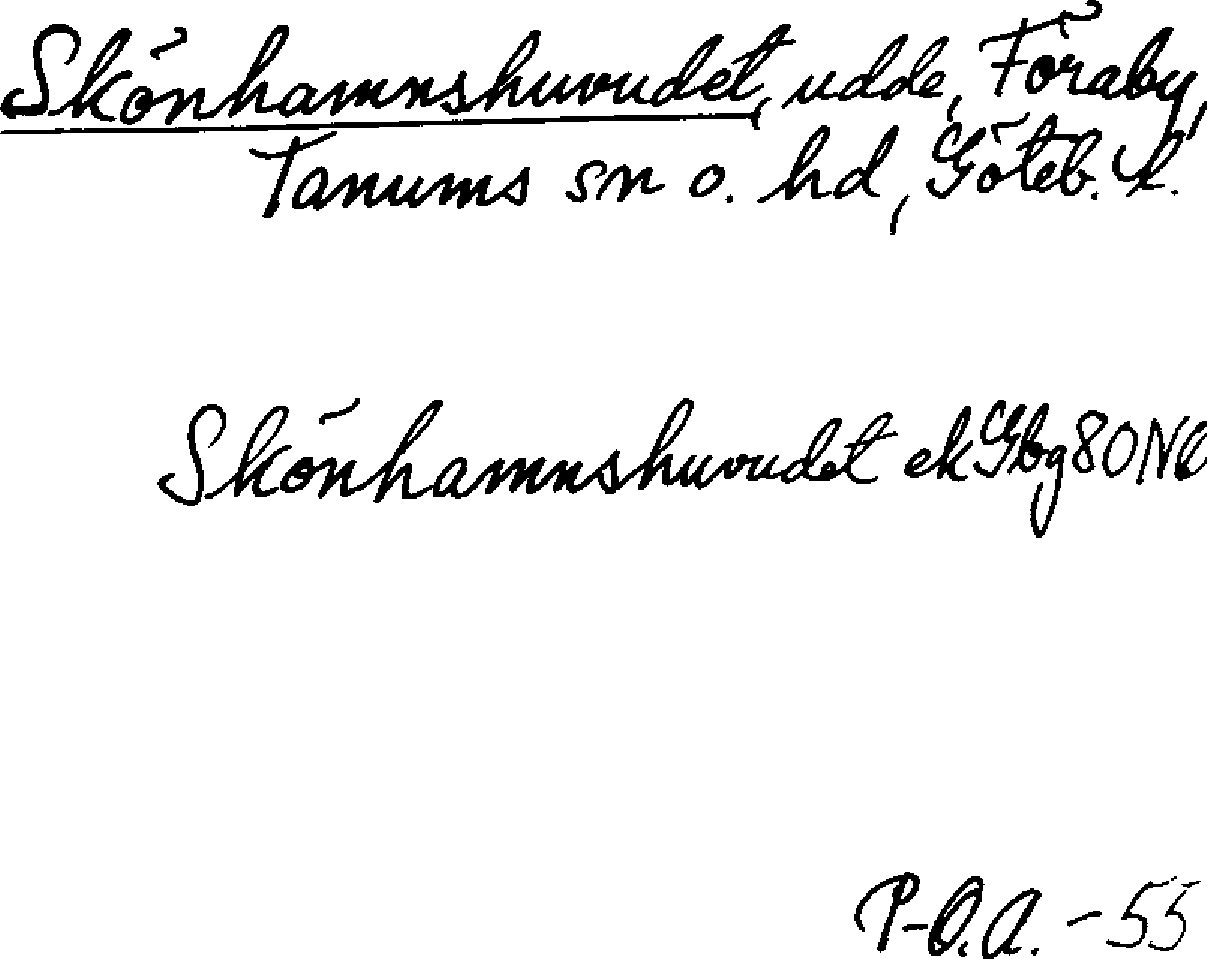 Skönhamnshuvudet, udde, Föraby,
Tanums sn o. hd, Göteb. l.
Skönhamnshuvudet ekGbg80NÖ
P-O.A. -55